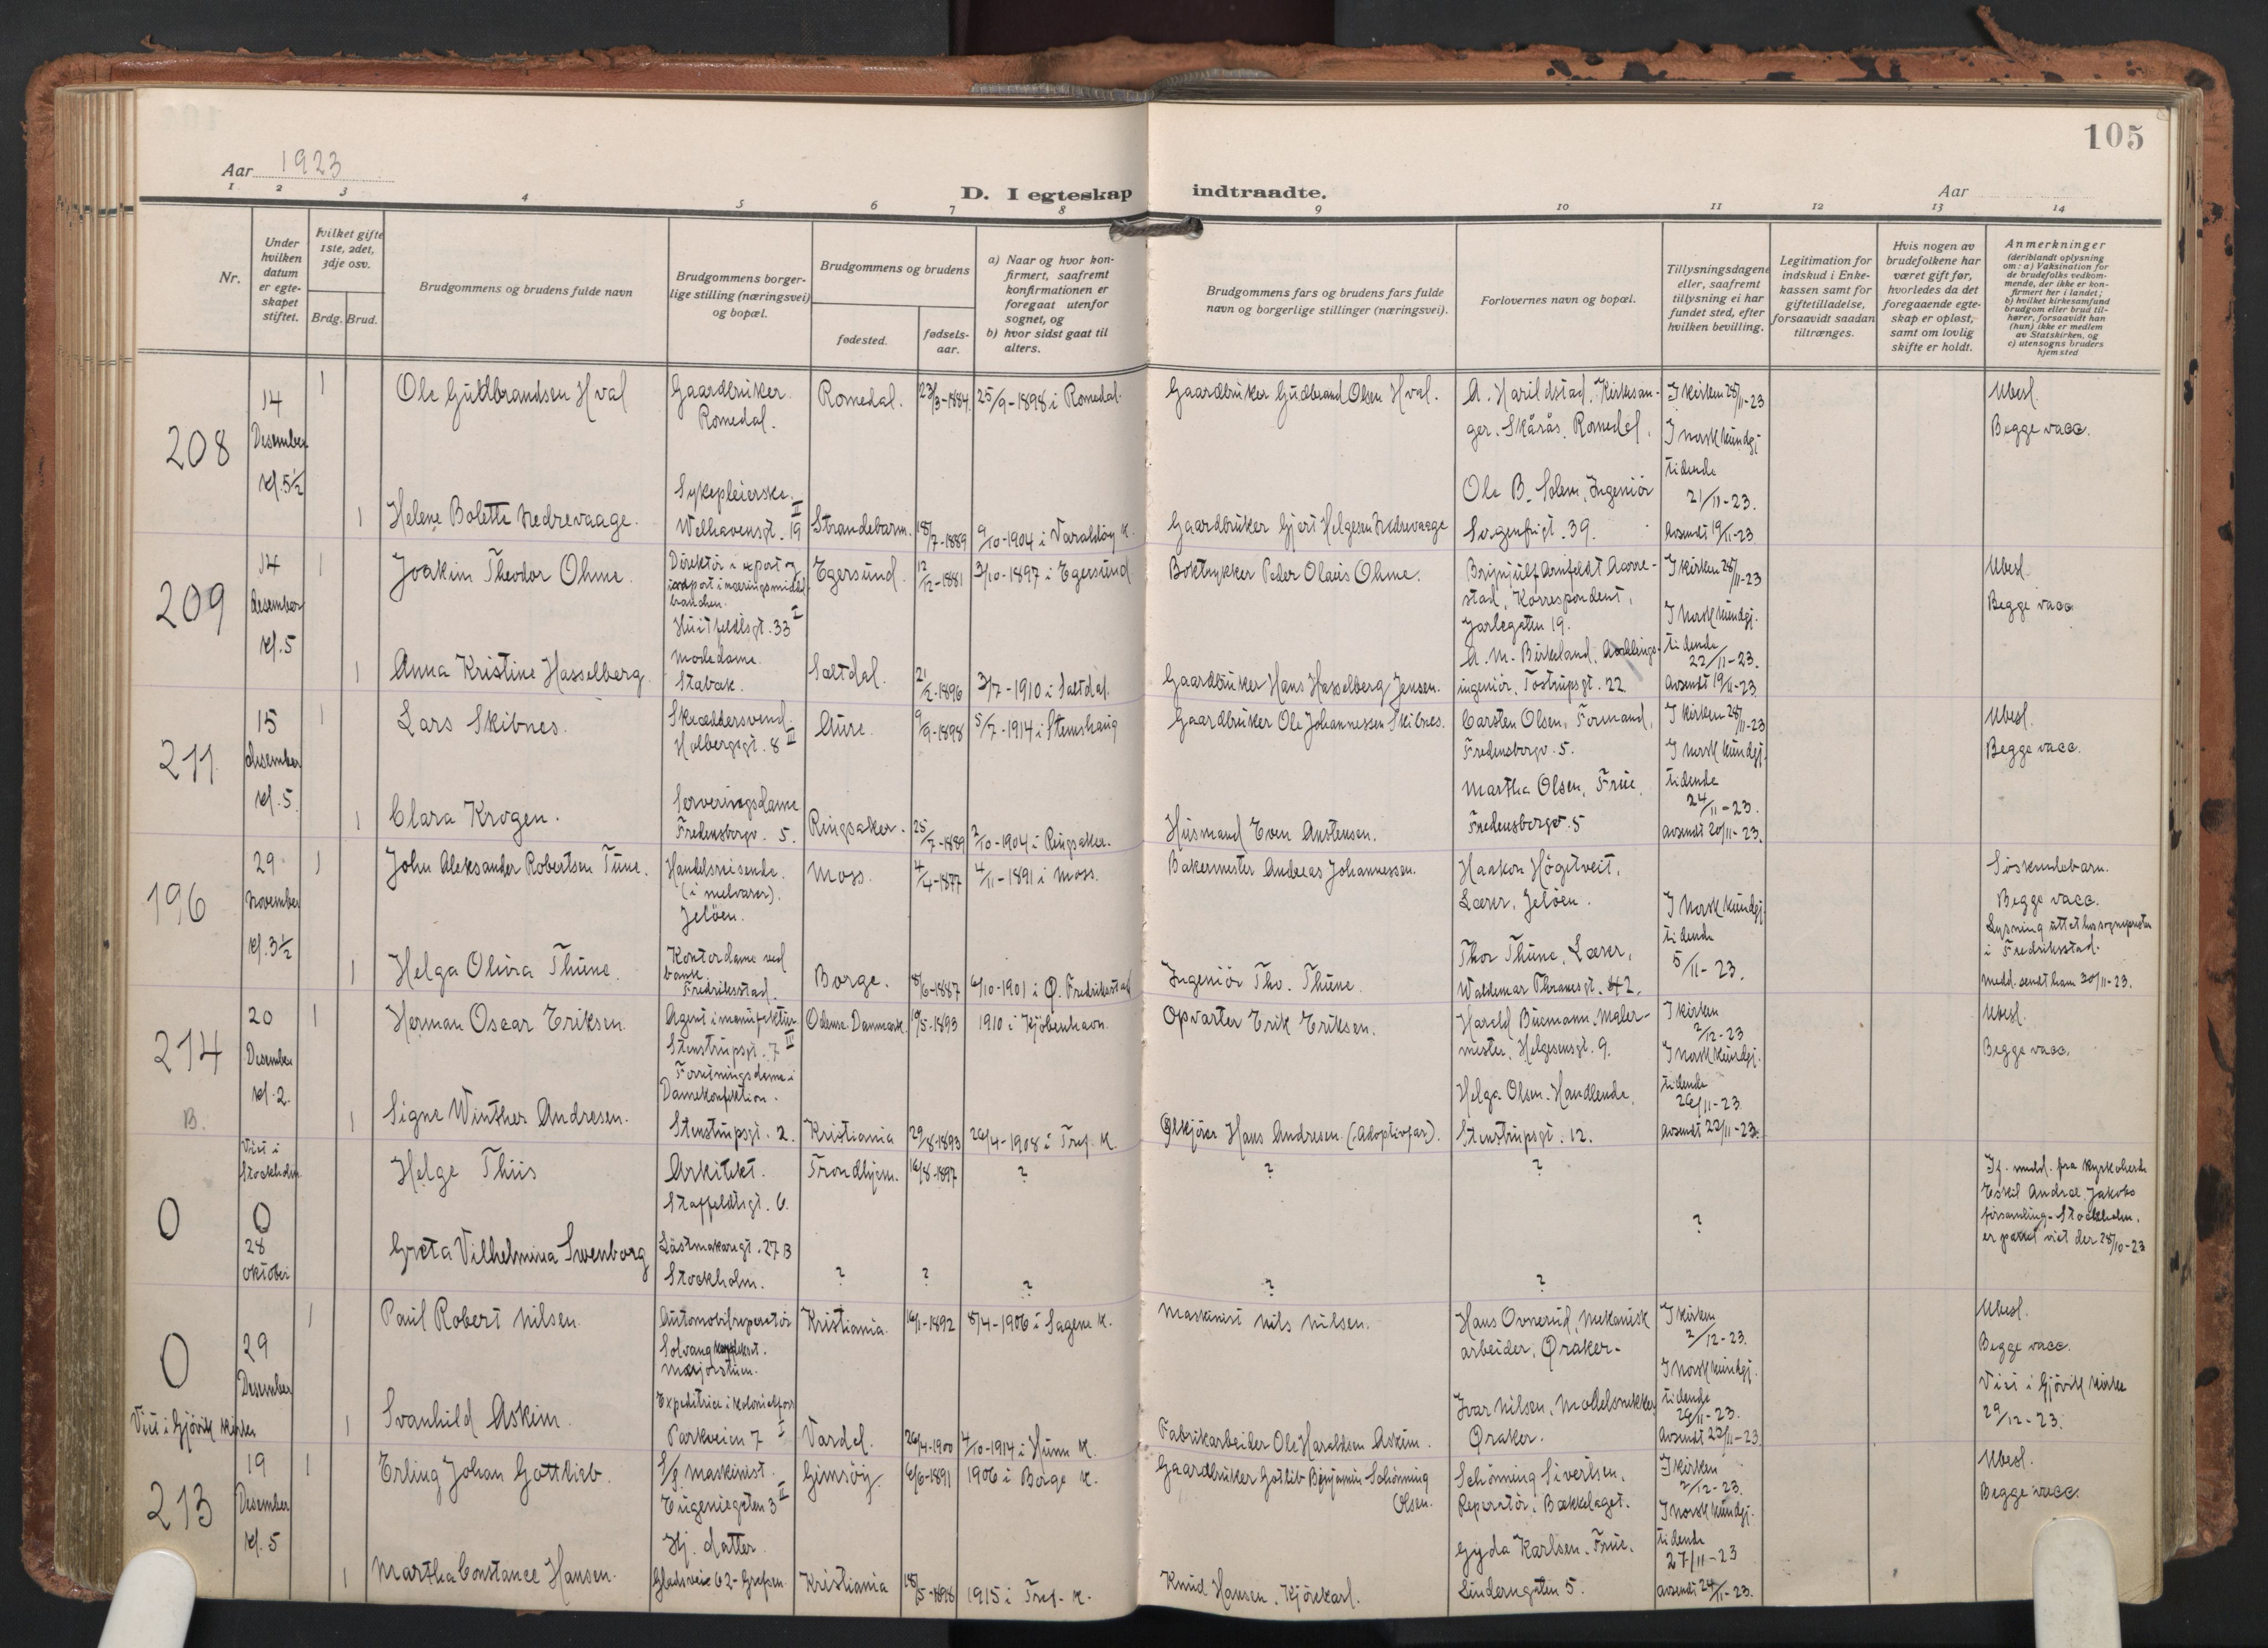 105
Aar 1923
D. I egteskap indtraadte.
Aar
1 2 3 4 5 6 7 8 9 10 11 12 13 14
Nr.
Under hvilken datum er egteskapet stiftet.
Hvilket gifte 1ste, 2det, 3dje osv.
Brdg. Brud.
Brudgommens og brudens fulde navn
Brudgommens borgerlige stilling (næringsvei) og bopæl.
Brudgommens og brudens
fødested.
fødselsaar.
a) Naar og hvor konfirmert, saafremt konfirmationen er foregaat utenfor sognet, og
b) hvor sidst gaat til alters.
Brudgommens fars og brudens fars fulde navn og borgerlige stillinger (næringsvei).
Forlovernes navn og bopæl.
Tillysningsdagene eller, saafremt tillysning ei har fundet sted, efter hvilken bevilling.
Legitimation for indskud i Enkekassen samt for giftetilladelse, forsaavidt saadan tiltrænges.
Hvis nogen av brudefolkene har været gift før, hvorledes da det foregaaende egteskap er opløst, samt om lovlig skifte er holdt.
Anmerkninger (deriblandt oplysning om: a) Vaksination for de brudefolks vedkommende, der ikke er konfirmert her i landet; b) hvilket kirkesamfund brudgom eller brud tilhører, forsaavidt han (hun) ikke er medlem av Statskirken, og c) utensogns bruders hjemsted
208
14 Desember kl. 5½
1 Ole Gudbrandsen Hval
Gaardbruker. Romedal.
Romedal. 23/3-1884 25/9-1898 i Romedal.
Gaardbruker Gudbrand Olsen Hval.
A. Harildstad, Kirkesanger. Skårås, Romedal.
I kirken 28/11-23
I norsk kundgj. tidende 21/11-23.
Avsendt 19/11-23
Ubesl.
Begge vacc.
1 Helene Bolette Nedrevaage.
Sykepleierske. Welhavensgt. 19 II
Strandebarm. 18/7-1889 9/10-1904 i Varaldöy k.
Gaardbruker Gjert Helgesen Nedrevaage
Ole B. Solem, Ingeniör Sorgenfrigt. 39.
209
14 desember kl. 5
1 Joakim Theodor Ohme.
Direktör i export og import i næringsmiddelbranchen. Huitfeldtsgt. 33 I
Egersund. 12/12-1881 3/10-1897 i Egersund
Boktrykker Peder Olaus Ohme.
Brynjulf Arnfeldt Aarrestad, Korrespondent, Jarlegaten 19.
I kirken 28/11-23
I Norsk kundgj. tidende 22/11-23.
Avsendt 19/11-23
Ubesl.
Begge vacc
1 Anna Kristine Hasselberg.
Modedame. Stabæk.
Saltdal. 21/2-1896 3/7-1910 i Saltdal.
Gaardbruker Hans Hasselberg Jensen.
A. M. Birkeland, Avdelingsingeniör, Tostrupsgt. 22
211
15 desember kl. 5.
1 Lars Skibnes.
Skræddersvend. Holbergsgt. 8 III
Aure. 9/9-1898 5/7-1914 i Stemshaug
Gaardbruker Ole Johannessen Skibnes.
Carsten Olsen, Formand, Fredensborgv. 5.
I kirken 28/11-23
I norsk kundgj. tidende 24/11-23.
avsendt 20/11-23.
Ubesl.
Begge vacc.
1 Clara Krogen.
Serveringsdame Fredensborgv. 5.
Ringsaker. 25/7-1889 2/10-1904 i Ringsaker.
Husmand Even Anstensen.
Martha Olsen, Frue, Fredensborgv. 5
196
29 november kl. 3½
1 John Aleksander Robertsen Tune.
Handelsreisende. (i melvarer). Jelöen.
Moss. 4/4-1877 4/11-1891 i Moss.
Bakermester Andreas Johannessen.
Haakon Högetveit, Lærer, Jelöen.
I Norsk kundgj. tidende 5/11-23.
Söskendebarn.
Begge vacc.
Lysning uttat hos sognepresten i Fredriksstad.
medd. sendt ham 30/11-23.
1 Helga Olivia Thune.
Kontordame ved bank. Fredriksstad.
Borge. 8/6-1887 6/10-1901 i Ø. Fredrikstad
Ingeniör Tho. Thune.
Thor Thune, Lærer, Waldemar Thranesgt. 42.
214
20 Desember kl. 2.
B.
1 Herman Oscar Eriksen.
Agent i manufaktur Stenstrupsgt. 7 III
Odense Danmark. 10/5-1893 1910 i Kjöbenhavn.
Opvarter Erik Eriksen.
Harald Buemann, Malermester, Helgesensgt. 9.
I kirken 2/12-23
I Norsk kundgj. tidende 26/11-23
Avsendt 22/11-23.
Ubesl.
Begge vacc.
1 Signe Winther Andresen.
Forretningsdame i Damekonfektion. Stenstrupsgt. 2.
Kristiania 29/8-1893 26/4-1908 i Tref. K.
Ølkjörer Hans Andresen (Adoptivfar).
Helga Olsen. Handlende, Stenstrupsgt. 12.
0
Viet i Stockholm
0
28 oktober
Helge Thiis
Arkitekt. Staffeldtsgt. 6.
Trondhjem. 16/8-1897 ?
? ? ?
If. medd. fra kyrkoherde Eskil Andræ, Jakobs församling. Stockholm. er parret viet der 28/10-23
Greta Vilhelmina Swenborg
Lästmakaregt. 27 B Stockholm.
? ? ? ? ?
0
29 Desember
Viet i Gjövik kirke
1 Paul Robert Nilsen.
Automobilreparatör Solvang Majorstuen.
Kristiania. 16/1-1892 8/4-1906 i Sagene K.
Maskinist Nils Nilsen.
Hans Ovnerud, Mekanisk arbeider, Øraker.
I kirken 2/12-23.
I Norsk kundgj. tidende 26/11-23.
Avsendt 22/11-23
Ubesl.
Begge vacc.
Viet i Gjövik kirke 29/12-23.
1 Svanhild Askim.
Expeditrice i kolonialforr. Parkveien 7 I
Vardal. 26/4-1900 4/10-1914 i Hunn K.
Fabrikarbeider Ole Haraldsen Askim.
Ivar Nilsen, Modelsnekker, Øraker.
213
19 Desember kl. 5
1 Erling Johan Gottlieb.
S/S maskinist. Eugeniegaten 3 II
Gimsöy. 6/6-1891 1906 i Borge K.
Gaardbruker Gotlib Benjamin Schönning Olsen.
Schönning Sivertsen, Reparatör, Bækkelaget.
I kirken 2/12-23.
I Norsk kundgj. tidende 27/11-23
avsendt 24/11-23.
Ubesl.
Begge vacc.
1 Martha Constance Hansen.
Hj. datter. Gladsvei 62 - Grefsen
Kristiania 18/5-1898 1915 i Tref. K.
Knud Hansen, Kjörekarl.
Gyda Karlsen, Frue, Linderngaten 5.